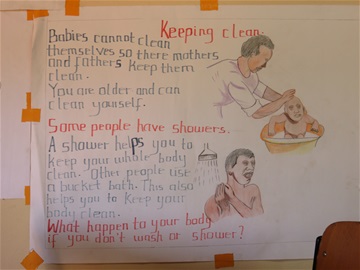 Keeping clean.
Babies cannot clean
themselves so there mothers
and fathers keep them
clean.
You are older and can
clean yourself.
Some people have showers.
A shower helps you to
keep your whole body
clean. Other people use
a bucket bath. This also
helps you to keep your
body clean.
What happen to your body
if you don't wash or shower?